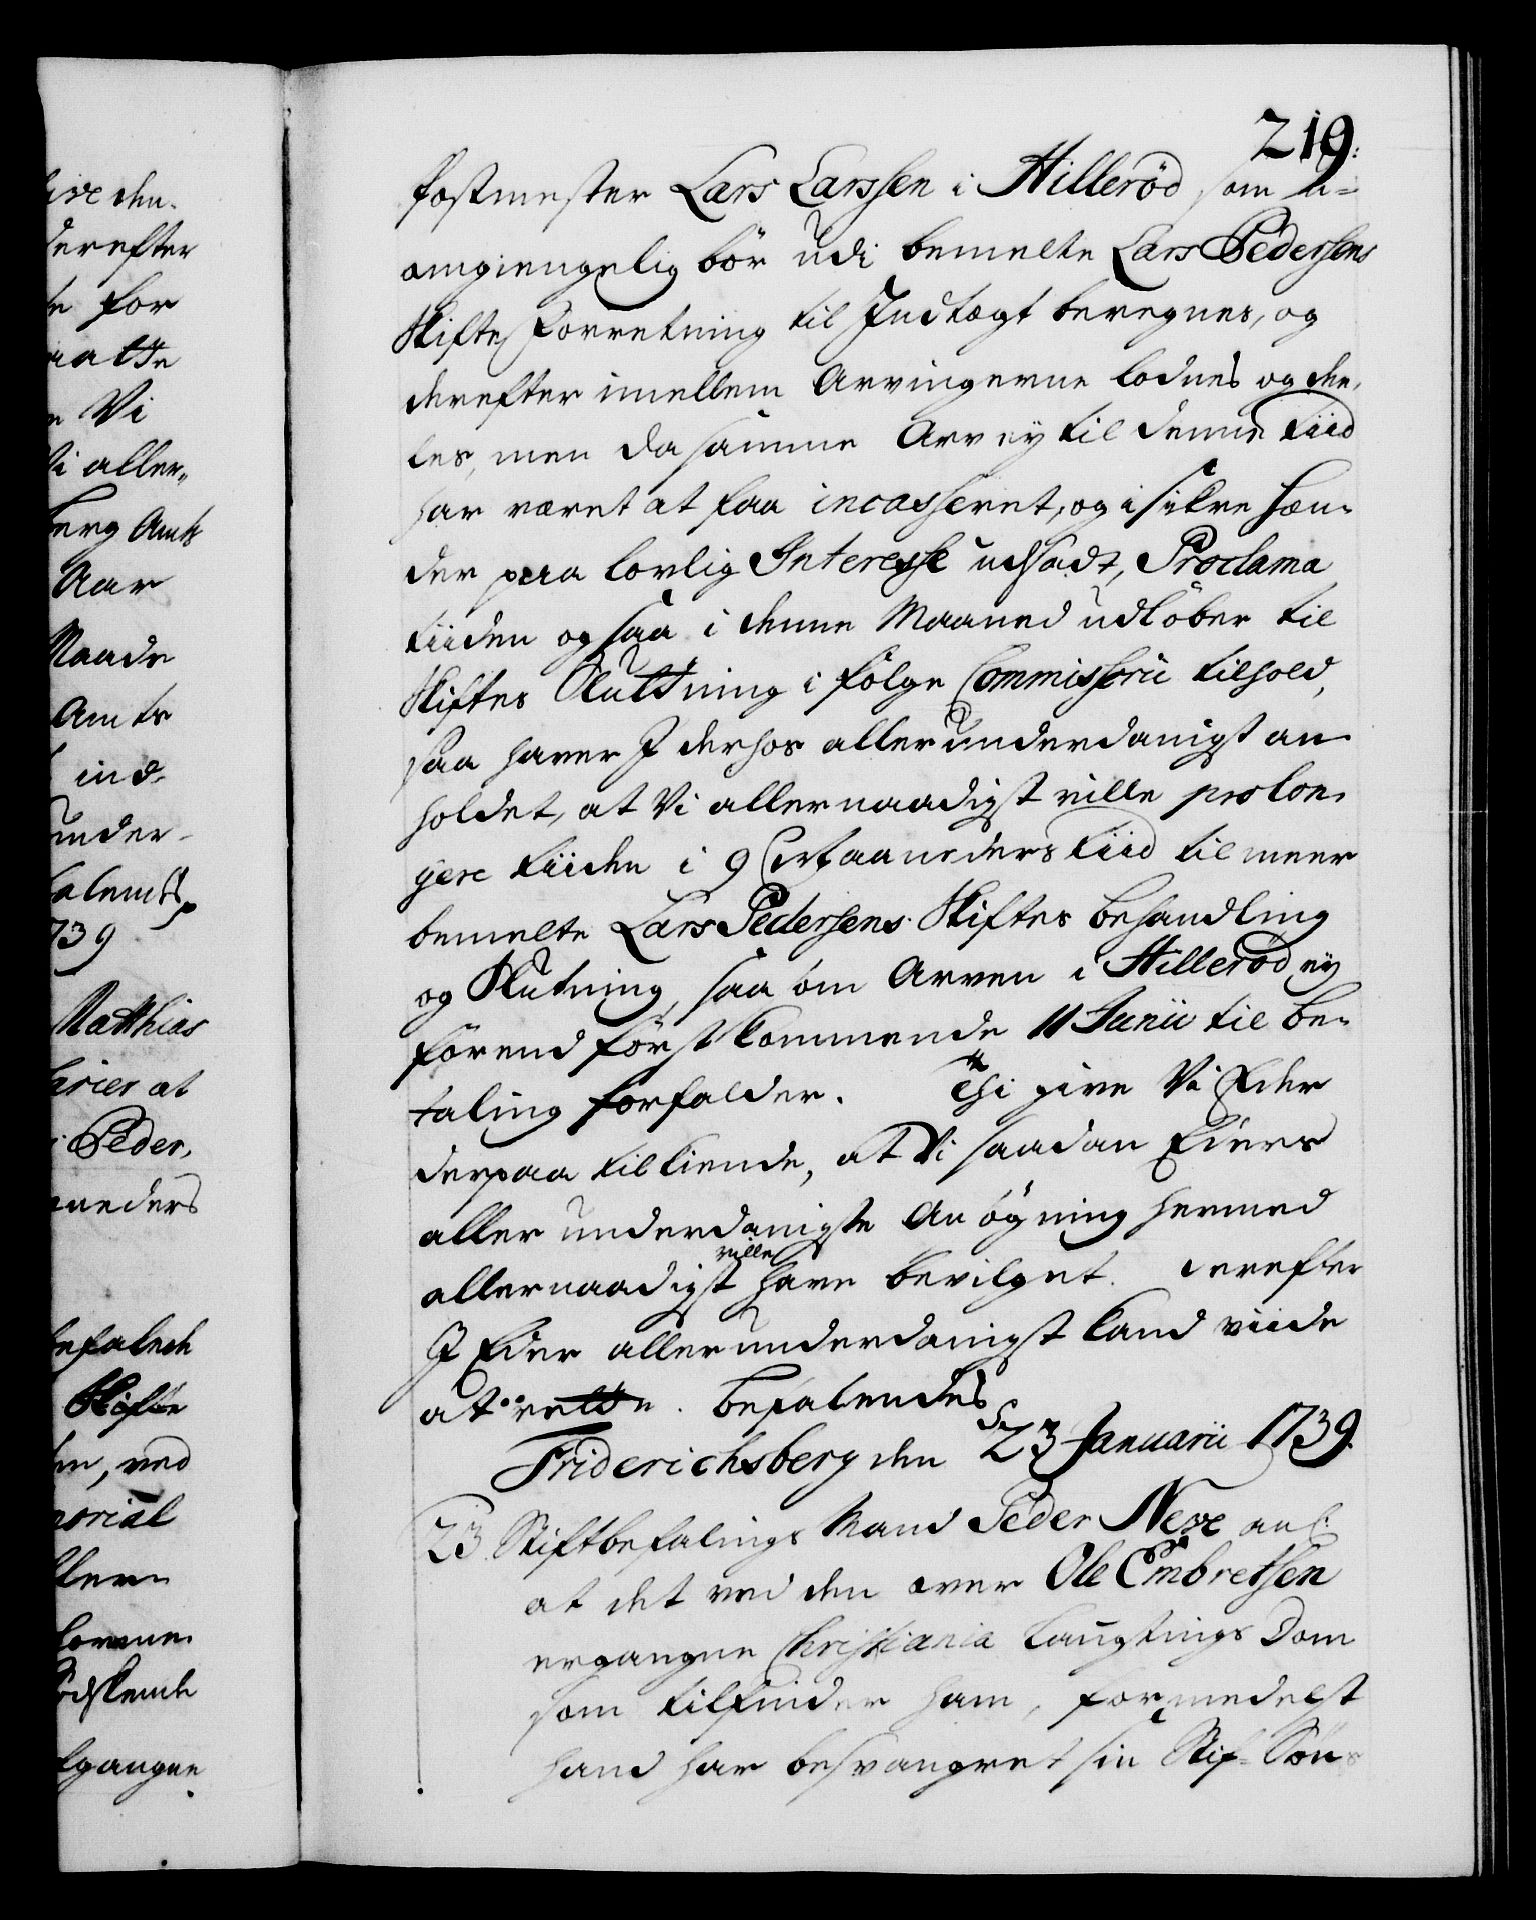 219.
Postmester Lars Larssen i Hillerød som u-
omgiengelig bör udi bemelte Lars Pedersens
Skifte Forretning til Indtægt beregnes, og
derefter imellem Arvingerne lodnes og dee,
les, men da samme Arv ey til denne tiid
har været at faa incasseret, og i sikre Hæn-
der paa lovlig Interesse udsadt, Proclama
tiiden og saa i denne Maaned udløber til
Skiftes Slutning i følge Commissorii tilhold,
saa haver I derhos allerunderdanigst an-
holdet, at Vi allernaadigst ville prolon-
gere tiiden i 9 Maaneders tiid til meer
bemelte Lars Pedersens Skiftes behandling
og Slutning, saa som Arven i Hillerød ey
förend först kommende 11 Junii til be-
taling forfalder. Thi give Vi Eder
derpaa tilkiende, at Vi saadan Eders
allerunderdanigste Ansøgning hermed
allernaadigst ville have bevilget. derefter
I Eder allerunderdanigst kand viide
at rette. befalendes
Friderichsberg den 23 Januarii 1739.
23. Stiftbefalings Mand Peder Neve anl:
at det ved den over Ole Embretsen
ergangne Christiania Laugtings Dom
som tilfinder ham, formedelst
hand har besvangret sin Stif-Söns
ive den.
derefter
for
Vi
Vi aller-
berg Amts
Aar
Maade
Amts
ind-
under-
739
Matthias
arier at
Peder,
aneders
befaleth
Skifte
ved
morial
gangne